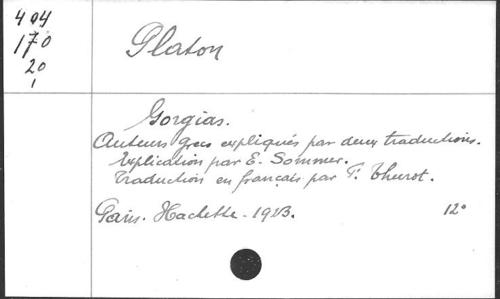 404
170
20
1
Platon
Gorgias.
Auteurs grecs expliqués par deux traductions.
Explication par E. Sommer.
Traduction en français par F. Thurot.
Paris. Hachette - 1913. 12°